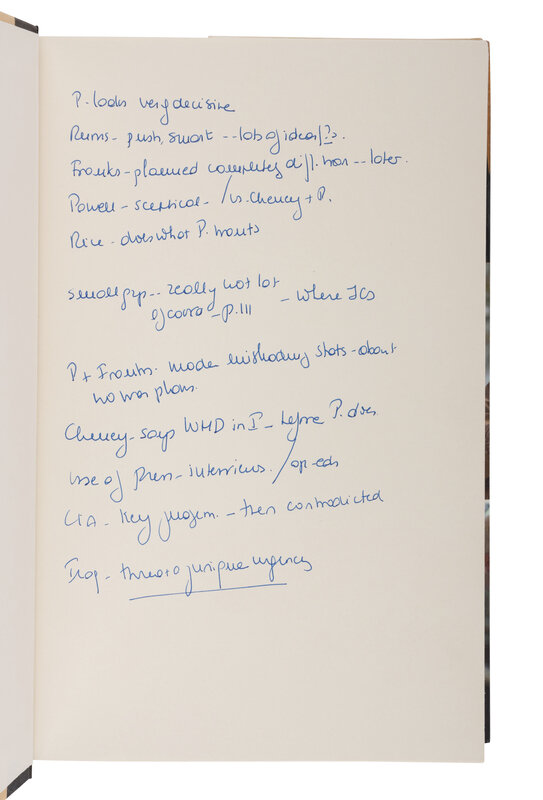 P. looks very decisive
Rums - push, smart -- lots of ideas/?s.
Franks - planned completely diff. war -- later.
Powell - sceptical - / vs. Cheney + P.
Rice - does what P. wants
small grp -- really not lot
of - p. 111 - where JCS
P + Franks - made misleading stats - about
no war plans.
Cheney - says WMD in I - before P. does
Use of press - interviews. / op-eds
CIA - key judgem. - then contradicted
Iraq - threat of unique urgency